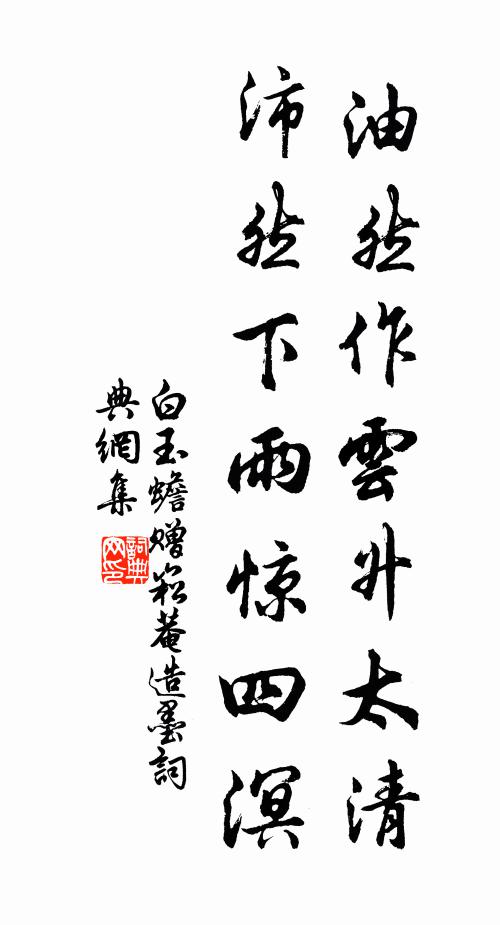 油然作雲升太清
沛然下雨惊四溟
白玉蟾赠崧菴造墨詞
典網集
詞典网印